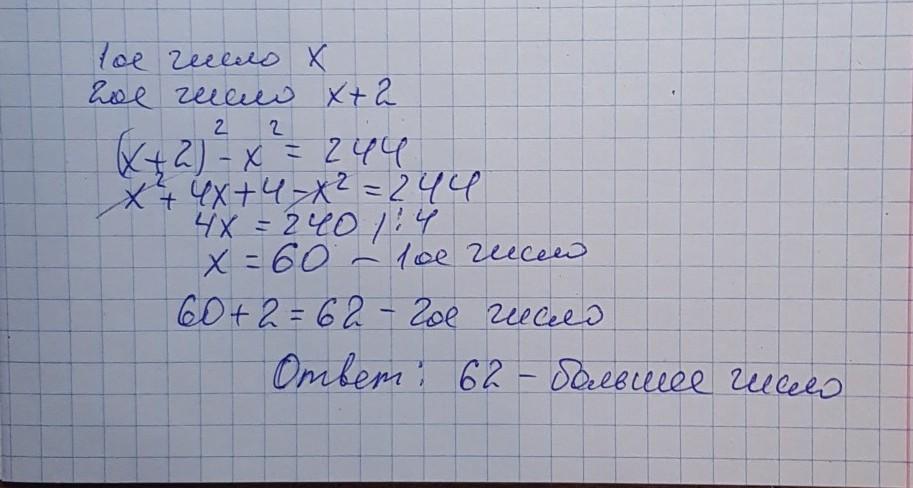 1ое число x
2ое число x+2
(x+2)² - x² = 244
x² + 4x + 4 - x² = 244
4x = 240 /:4
x = 60 - 1ое число
60 + 2 = 62 - 2ое число
Ответ: 62 - большее число